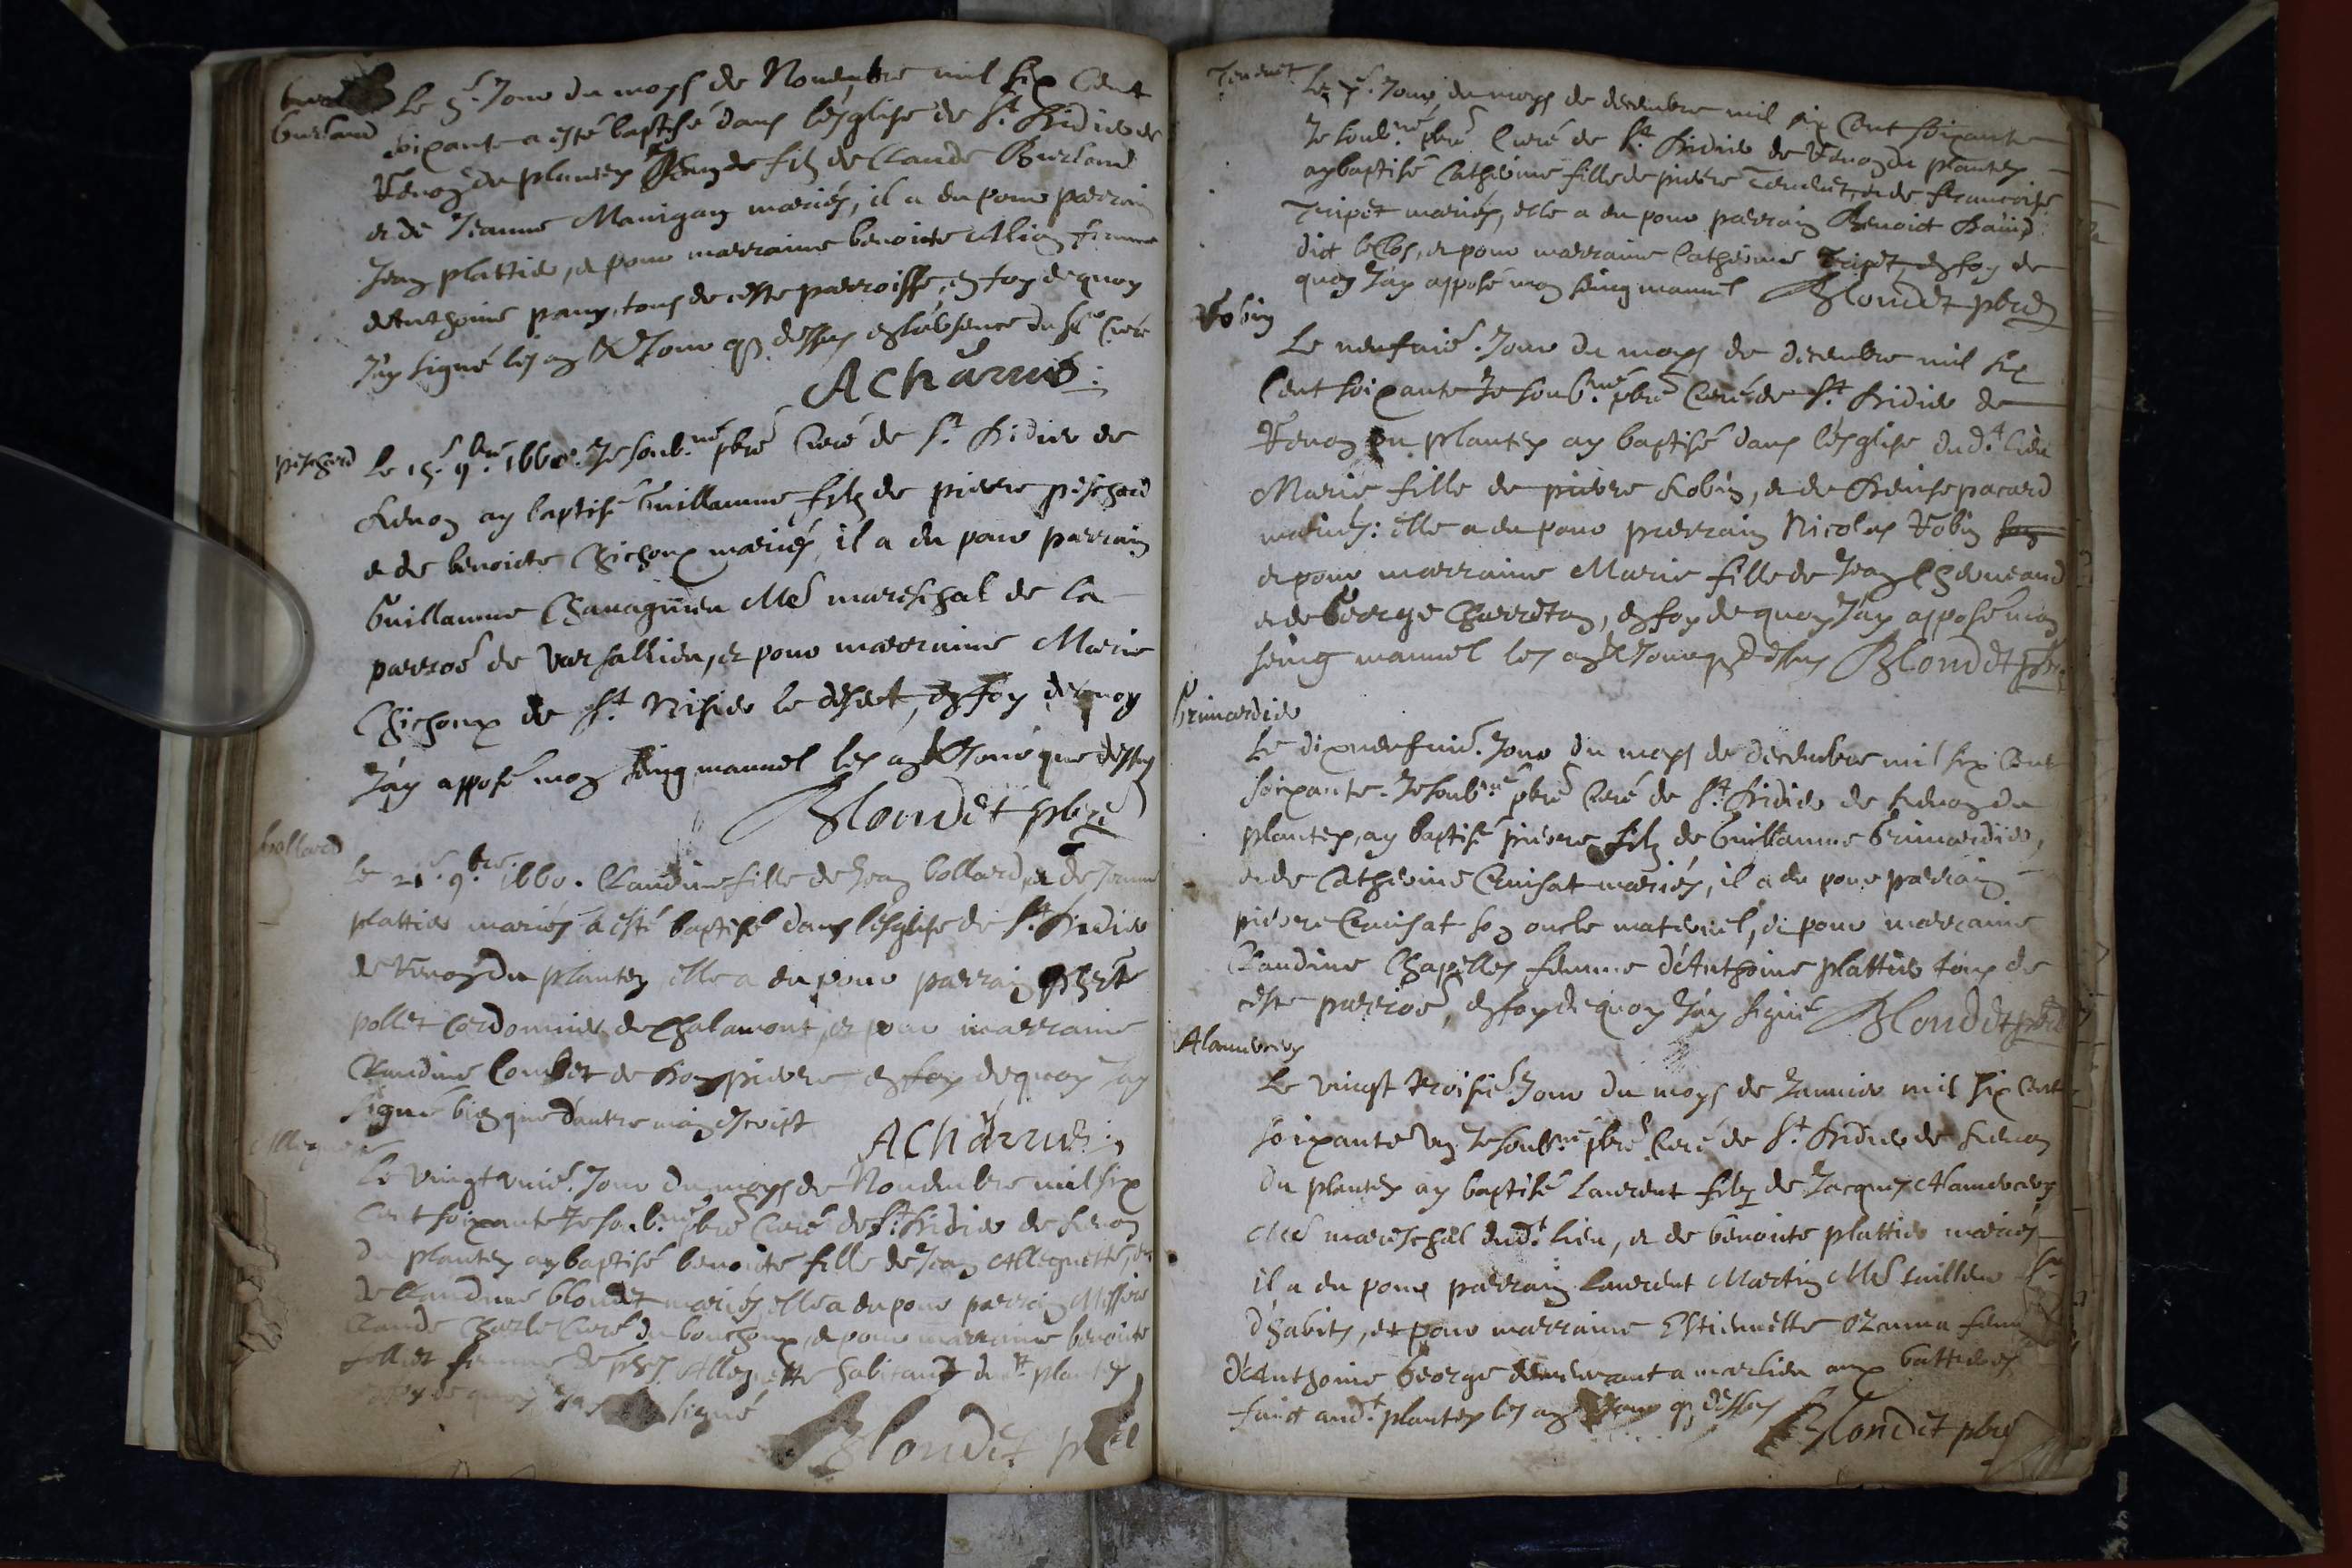 burland
Le 5e. Jour du moys de Novembre mil six Cent
soixante a esté baptisé dans lésglise de St. Didier de
Renon du plantey fils de Claude Burland
et de Jeanne Manigan mariés, il a eu pour parrain
Jean plattier, et pour marraine benoiste Alion femme
d'Anthoine pany, tous de ceste parroisse, en foy dequoy
J'ay signé les an & Jour q dessus en l'absence du Sr Curé
ACharrier
pischard
Le 15e 9bre 1660. Je soubné pbre Curé de St. Didier de
Renon ay baptisé Guillaume filz de pierre pischard
et de benoicte Chichoux mariés, il a eu pour parrain
Guillaume Chanagnieu Me mareschal de la
parroe de Versallieu, et pour marraine Marie
Chichoux de St. Nisier le desert, en foy dequoy
J'ay apposé mon seing manuel les an & Jour que dessus
Blondet pbre
bollard
Le 21e. 9bre 1660. Claudine fille de Jean bollard, et de Jeanne
plattier mariés a esté baptisé dans lésglise de St. Didier
de Renon du plantey elle a eu pour parrain
pollet Cordonnier de Chalamont, et pour marraine
Claudine Combet de Dompierre en foy dequoy J'ay
signé bien que d'autre main escript
ACharrier
Allegnette
Le vingt unie. Jour du moys de Novembre mil six
Cent soixante Je soubné pbre Curé de St. Didier de Renon
du plantey ay baptisé benoiste fille de Jean Allegnette, et
de Claudine blondet mariés, elle a eu pour parrain Messire
Claude Charle Curé du bouchoux, et pour marraine benoiste
femme de Allegnette habitant dudt. plantey
en foy de quoy J'ay signé
Blondet pbre
Tenenet
Le 7e. Jour du moys de decembre mil six Cent soixante
Je soubné. pbre Curé de St. Didier de Renon du plantey
ay baptisé Catherine fille de pierre Tenenet, et de francoise
Tripet mariés, elle a eu pour parrain Benoict David
dict leClos, et pour marraine Catherine Tripet, en foy de
quoy J'ay apposé mon seing manuel Blondet pbre
Robin
Le neufvie. Jour du moys de decembre mil six
Cent soixante Je soubné. pbre Curé de St. Didier de
Renon du plantey ay baptisé dans lésglise dudt. lieu
Marie fille de pierre Robin, et de Denise pacard
mariés: elle a eu pour parrain Nicolas Robin
et pour marraine Marie fille de Jean Cheneaud
et de George Charreton, en foy de quoy J'ay apposé mon
seing manuel les an & Jour q dessus Blondet pbre
Grimardier
Le dixneufvie. Jour du moys de decembre mil six Cent
soixante. Je soubné pbre Curé de St. Didier de Renon du
plantey, ay baptisé pierre filz de Guillaume Grimardier,
et de Catherine Cruisat mariés, il a eu pour parrain
pierre Cruisat son oncle maternel, et pour marraine
Claudine Chapelles femme d'Anthoine plattier tous de
ceste parroe, en foy de quoy J'ay signé Blondet pbre
Alamercery
Le vingt troisie Jour du moys de Janvier mil six Cent
soixante un Je soubné pbre Curé de St. Didier de Renon
du plantey ay baptisé Laurent filz de Jacques Alamercery
Me mareschal dudt. lieu, et de benoiste plattier mariés
il a eu pour parrain Laurent Martin Me tailleur
d'habits, et pour marraine Estiennette Ozanna femme
d'Anthoine George demeurant a marlieu aux battieres
faict audt. plantey les an & Jour q dessus
Blondet pbre